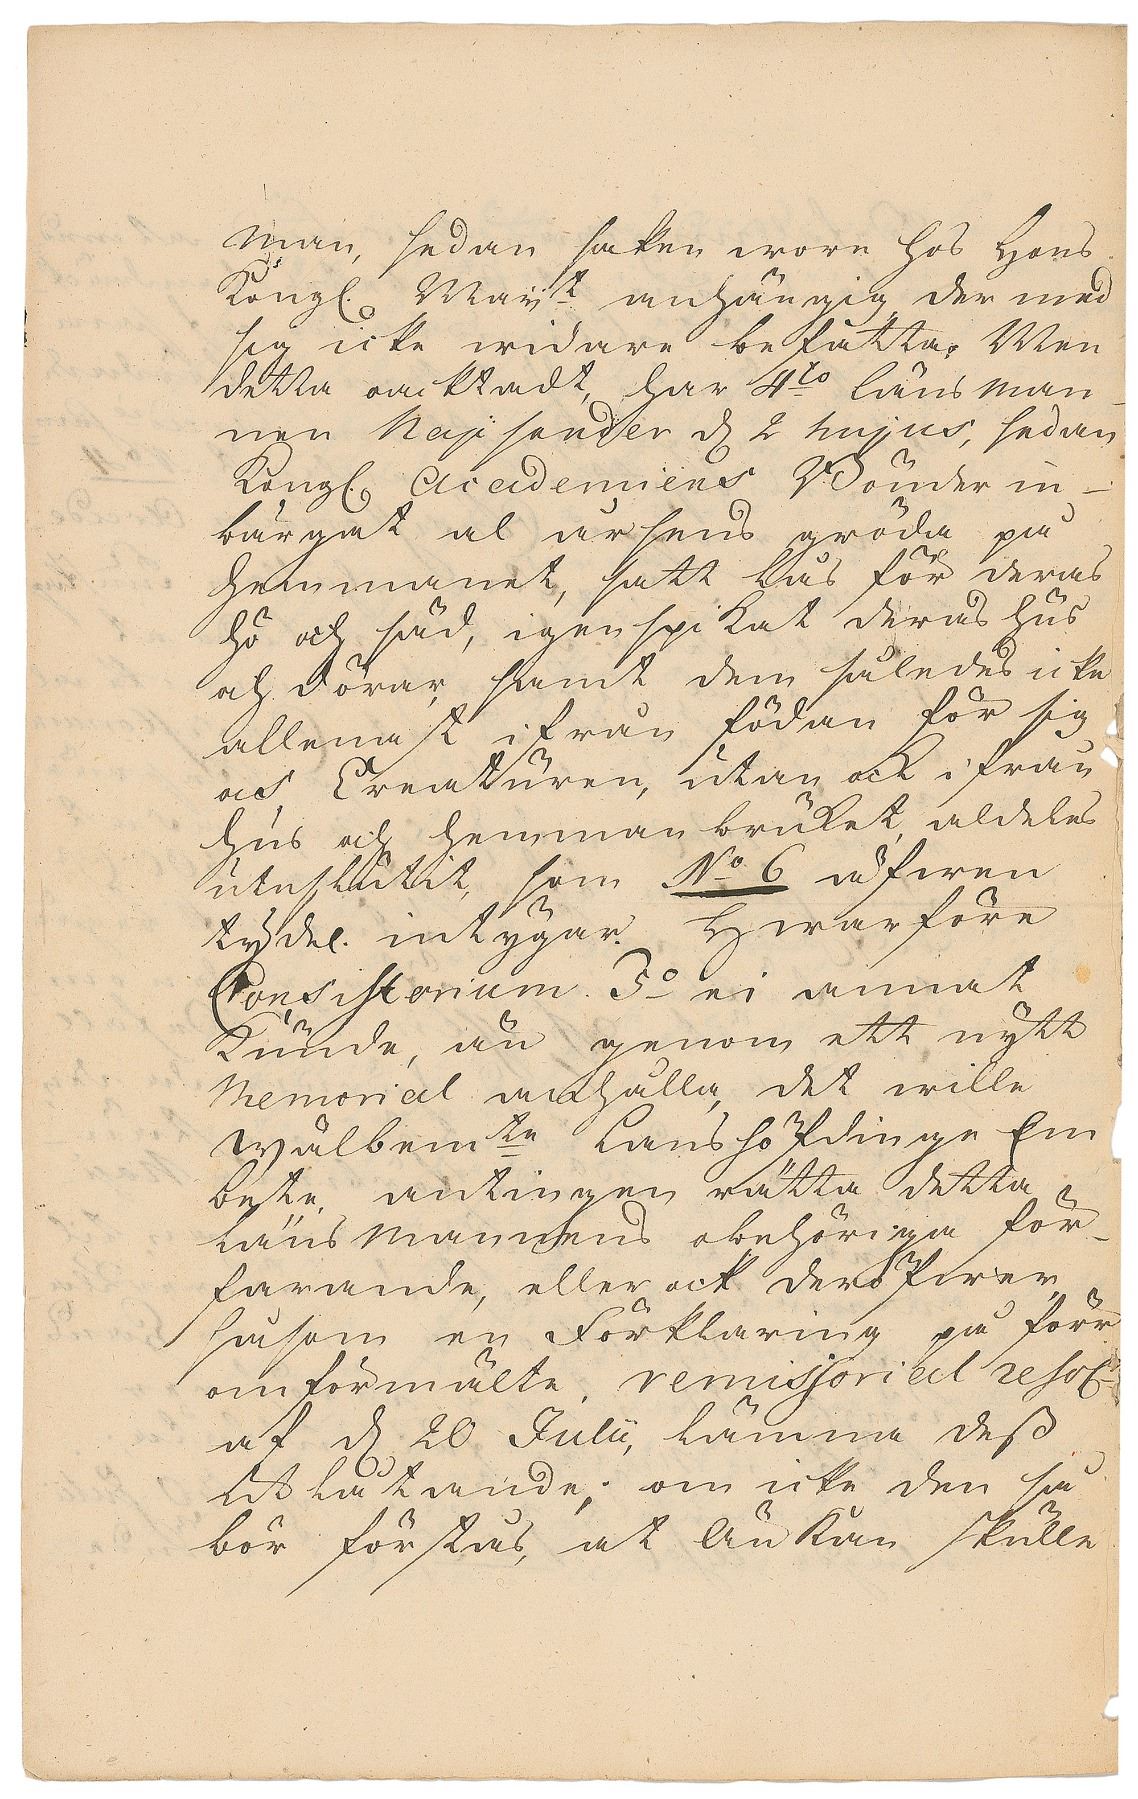 man, sedan saken wore hos Hans
Kongl. Maijt anhängig der med
sig icke widare befatta. Men
detta oacktadt, har 4to länsman-
nen Najsender d. 2 hujus, sedan
Kongl. Academiens Bönder in-
bärgat al årsens gröda på
hemmanet, satt lås för deras
hö och säd, igenspikat deras hus
och dörar, samt dem således icke
allenast ifrån födan för sig
och Creaturen, utan ock ifrån
hus och hemmanbruket, aldeles
uteslutit, som No 6 äfwen
tydel. intygar. Hwarföre
Consistorium 5o ei annat
kunde, än genom ett nytt
Memorial anhålla, det wille
wälbemte Landshöfdinge Em
bete, antingen rätta detta
länsmannens obehöriga för-
farande, eller ock deröfwer,
såsom en Förklaring på förr
omförmälte remissorial resol.
af d. 20 Julii, lämna dess
utlåtande; om icke den så
bör förstås, at länkan skulle